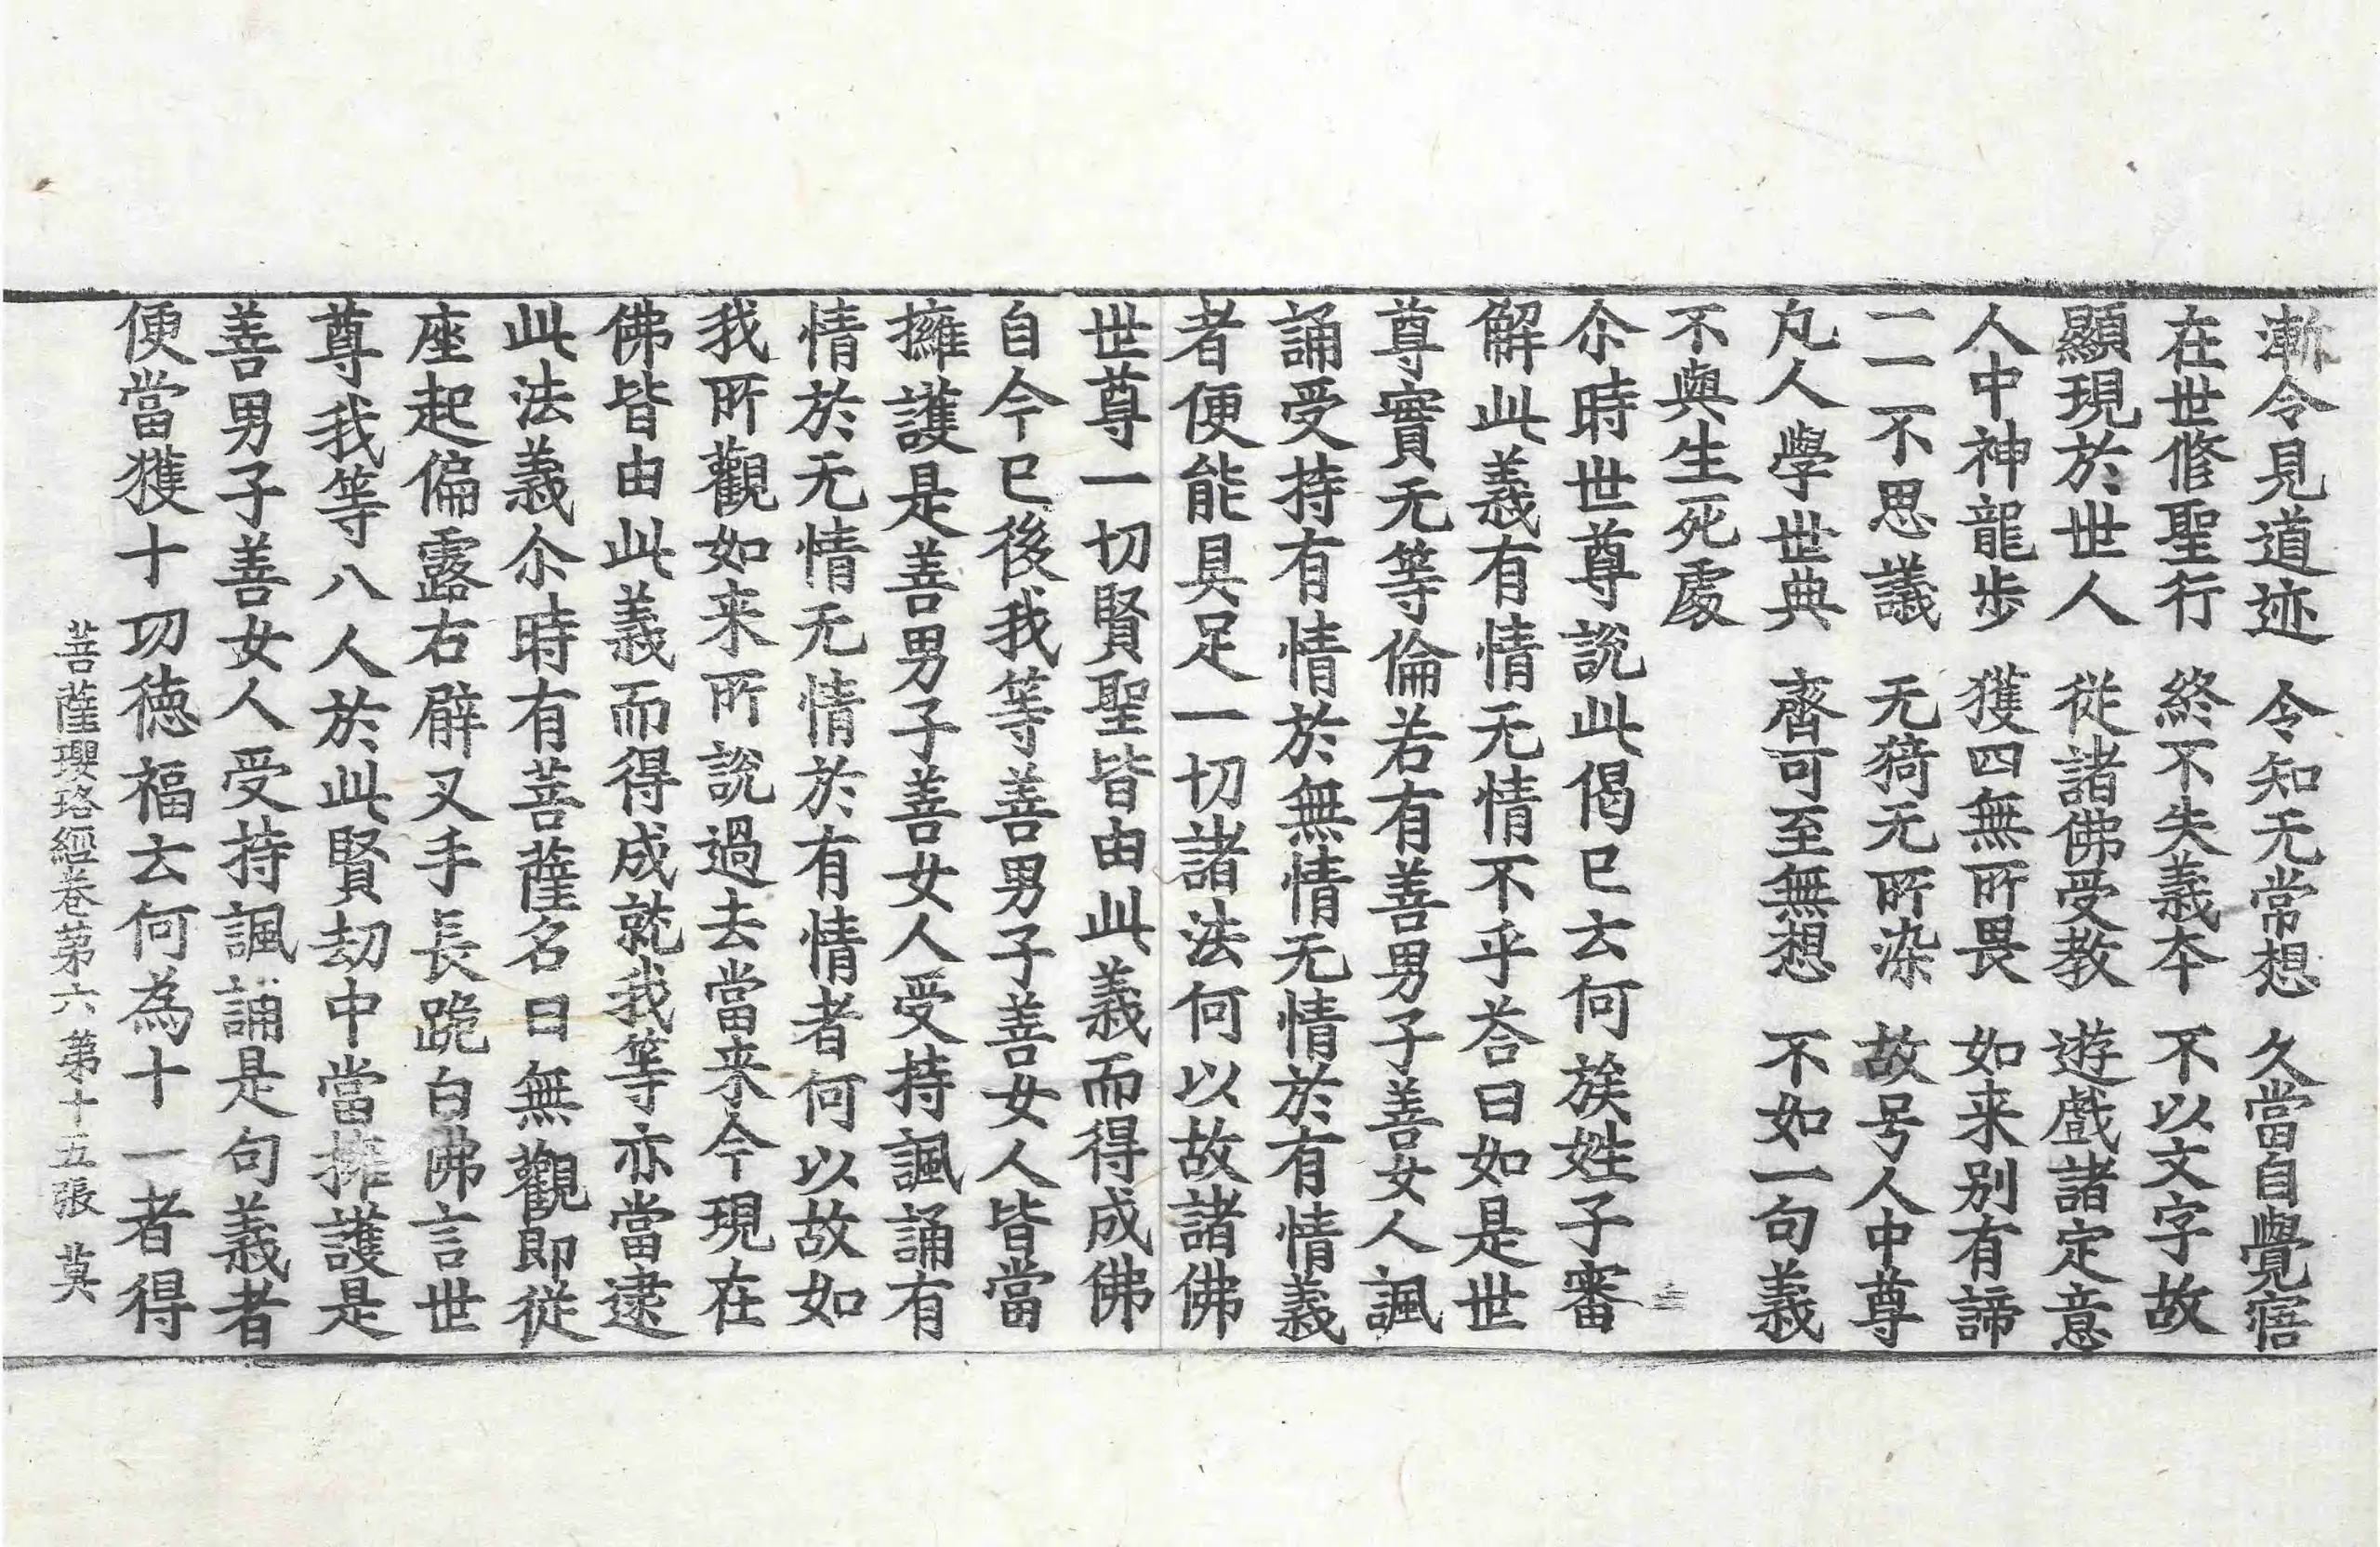 漸令見道迹　令知无常想　久當自覺寤
在世修聖行　終不失義本　不以文字故
顯現於世人　從諸佛受教　遊戲諸定意
人中神龍步　獲四無所畏　如来别有諦
一一不思議　无猗无所染　故号人中尊
凡人學世典　齊可至無想　不如一句義
不與生死處
尒時世尊說此偈已云何族姓子審
解此義有情无情不乎荅曰如是世
尊實无等倫若有善男子善女人諷
誦受持有情於無情无情於有情義
者便能具足一切諸法何以故諸佛
世尊一切賢聖皆由此義而得成佛
自今已後我等善男子善女人皆當
擁護是善男子善女人受持諷誦有
情於无情无情於有情者何以故如
我所觀如来所說過去當来今現在
佛皆由此義而得成就我等亦當逮
此法義尒時有菩薩名曰無觀即從
座起偏露右臂叉手長跪白佛言世
尊我等八人於此賢劫中當擁護是
善男子善女人受持諷誦是句義者
便當獲十功德福云何為十一者得
菩薩瓔珞經卷第六　第十五張　莫